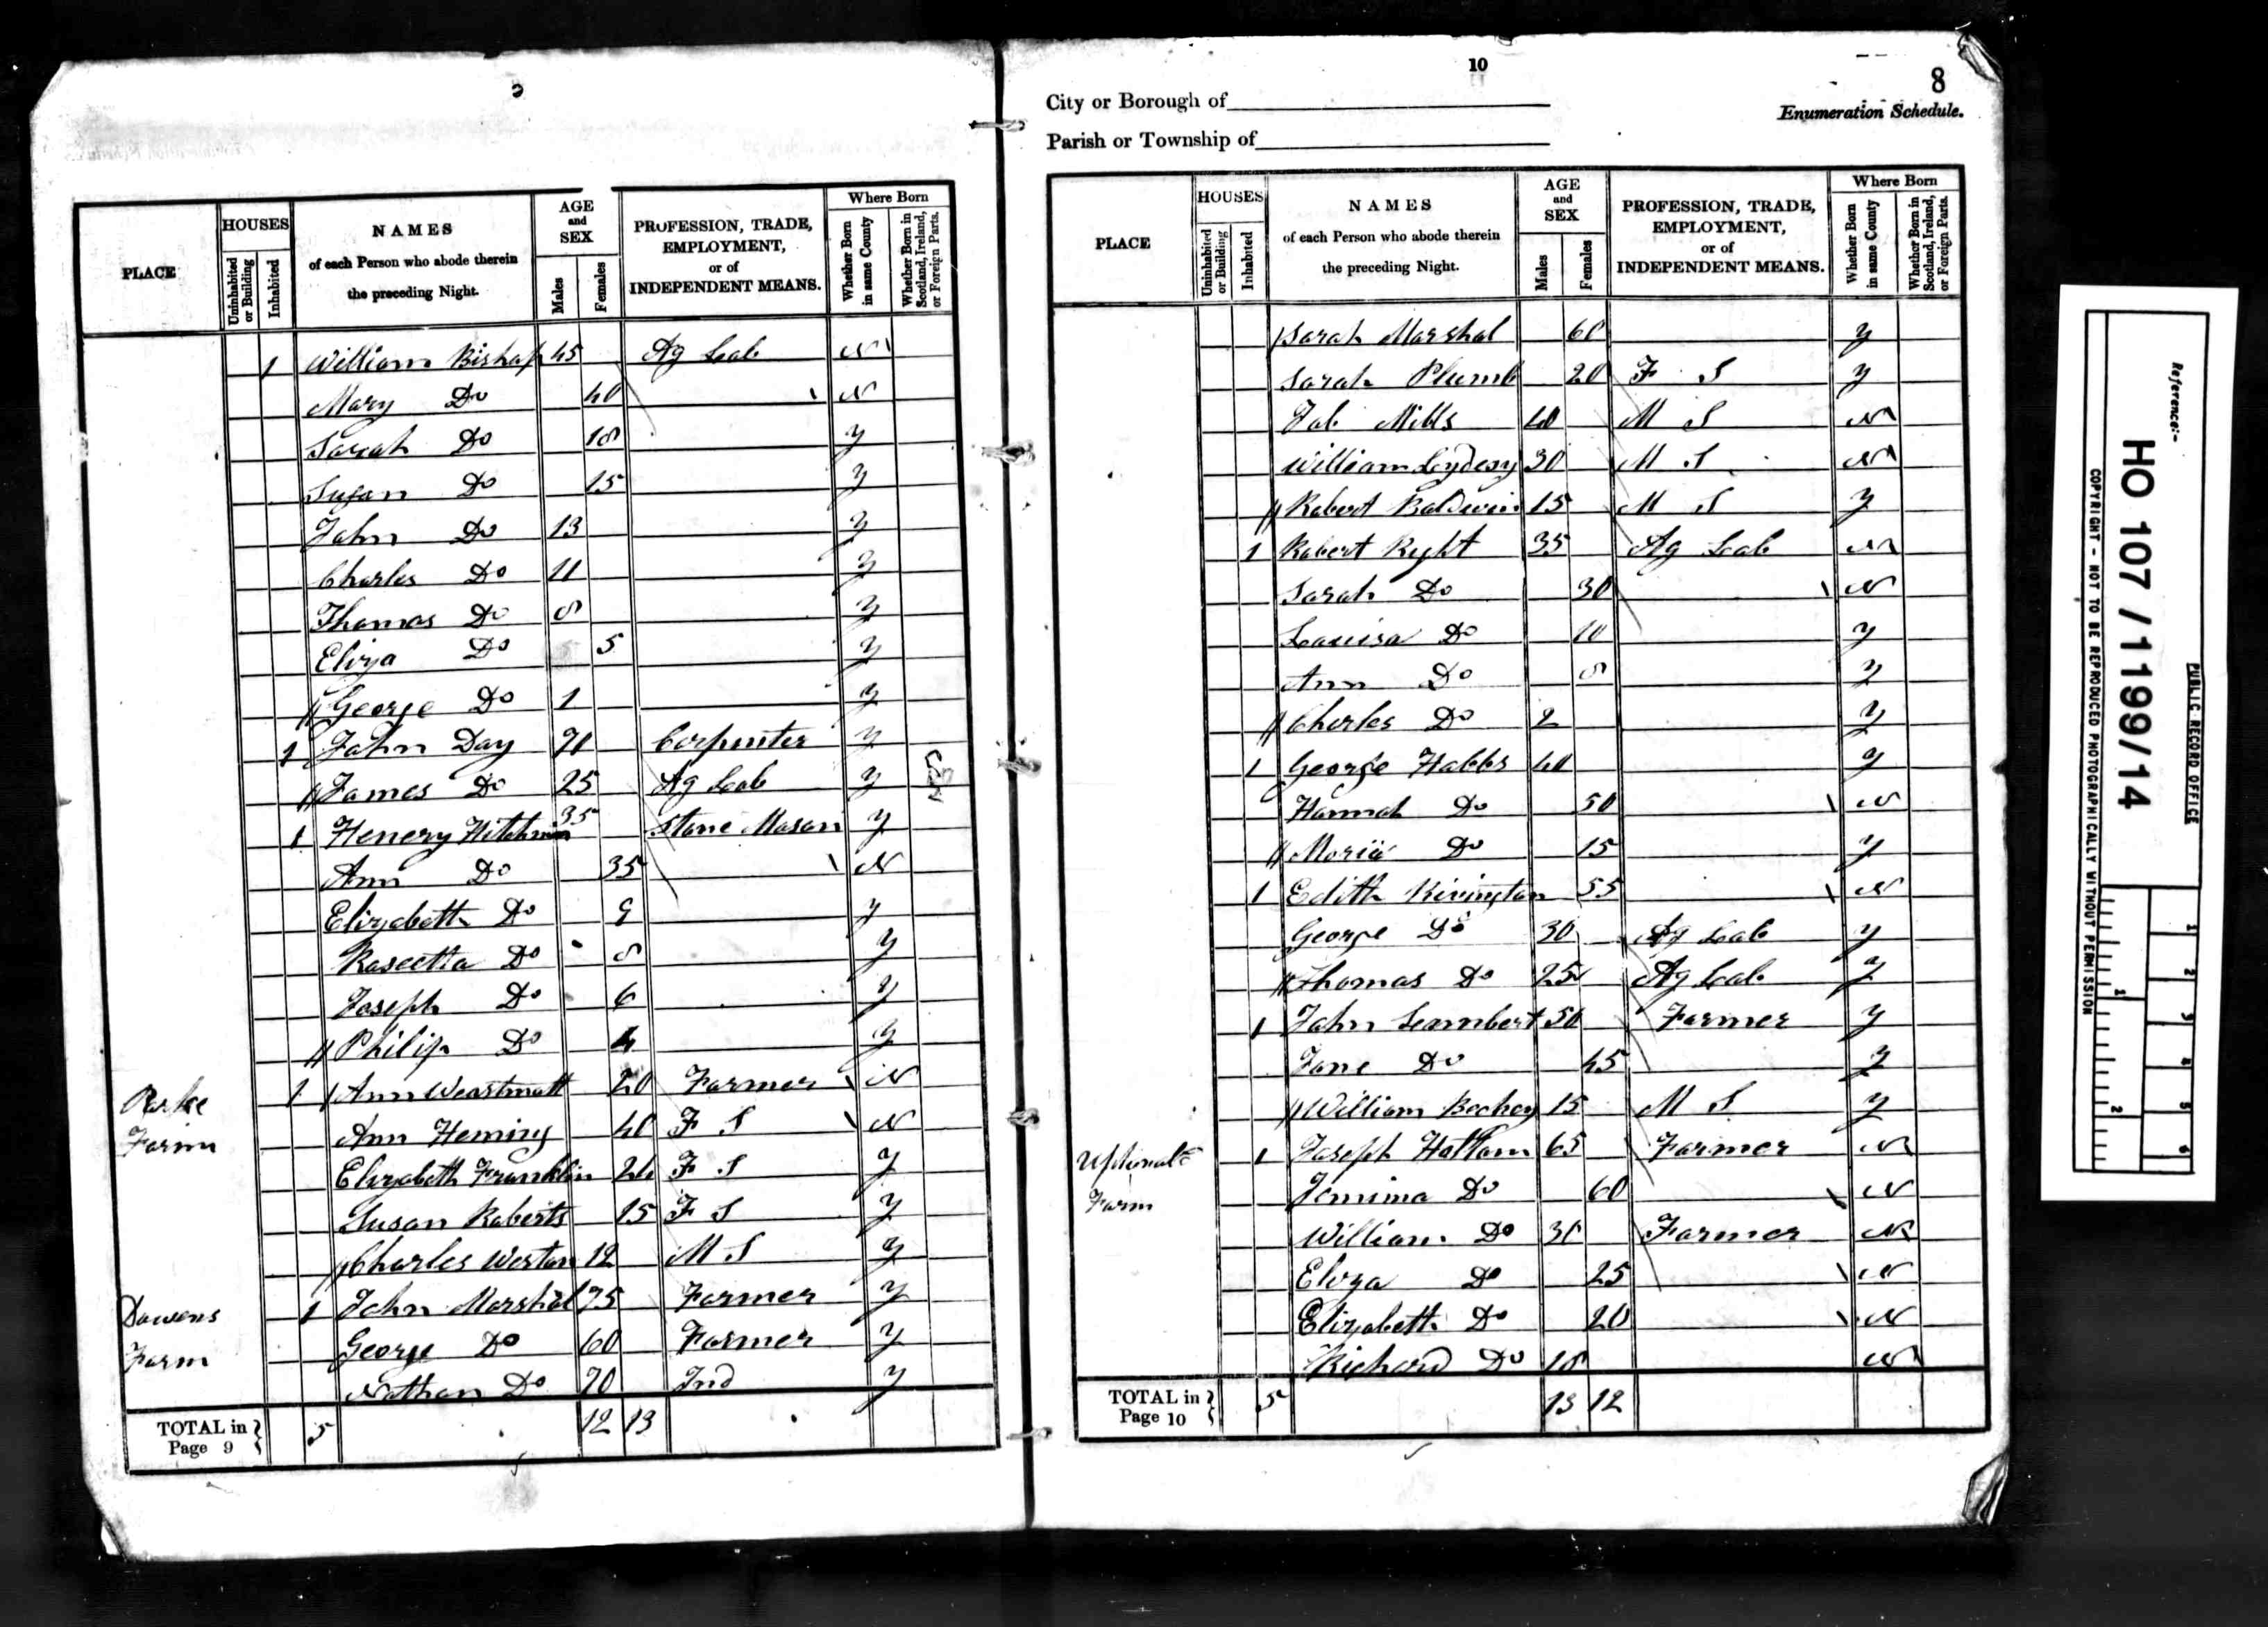 PLACE
HOUSES
Uninhabited or Building
Inhabited
NAMES
of each Person who abode therein
the preceding Night.
AGE
and
SEX
Males
Females
PROFESSION, TRADE,
EMPLOYMENT,
or of
INDEPENDENT MEANS.
Where Born
Whether Born in same County
Whether Born in Scotland, Ireland, or Foreign Parts.
1 William Bishop 45 Ag Lab N
Mary Do 40 N
Sarah Do 18 y
Susan Do 15 y
John Do 13 y
Charles Do 11 y
Thomas Do 8 y
Eliza Do 5 y
George Do 1 y
1 John Day 70 Carpenter y
James Do 25 Ag Lab y
1 Henery 35 Stone Mason y
Ann Do 35 N
Elizabeth Do 9 y
Do 8 y
Joseph Do 6 y
Philip Do 4 y
Parke 1 Ann 20 Farmer N
Farm Ann Heming 40 F S N
Elizabeth Franklin F S y
Susan Roberts 15 F S y
Charles Weston 12 M S y
Dawens 1 John Marshal 75 Farmer y
Farm George Do 60 Farmer y
Nathan Do 70 Ind y
TOTAL in Page 9 5 12 13
10
8
City or Borough of
Enumeration Schedule.
Parish or Township of
PLACE
HOUSES
Uninhabited or Building
Inhabited
NAMES
of each Person who abode therein
the preceding Night.
AGE
and
SEX
Males
Females
PROFESSION, TRADE,
EMPLOYMENT,
or of
INDEPENDENT MEANS.
Where Born
Whether Born in same County
Whether Born in Scotland, Ireland, or Foreign Parts.
Sarah Marshal 60 y
Sarah Plumb 20 F S y
Job Mills 40 M S N
William 30 M S N
Robert Baldwin 15 M S y
1 Robert Ryht 35 Ag Lab N
Sarah Do 30 N
Louisa Do 10 y
Ann Do 8 y
Charles Do 2 y
1 George Habbs 40 y
Hannah Do 50 N
Moria Do 15 y
1 Edith Rivington 55 N
George Do 30 Ag Lab y
Thomas Do 25 Ag Lab y
1 John Lambert 50 Farmer y
Jane Do 45 y
William 15 M S y
1 Joseph Hattam 65 Farmer N
Farm Jemima Do 60 N
William Do 30 Farmer N
Eliza Do 25 N
Elizabeth Do 20 N
Richard Do 18 N
TOTAL in Page 10 5 13 12
Reference:-
HO 107 / 1199/14
PUBLIC RECORD OFFICE
COPYRIGHT - NOT TO BE REPRODUCED PHOTOGRAPHICALLY WITHOUT PERMISSION
1
2
3
4
5
6
1
2